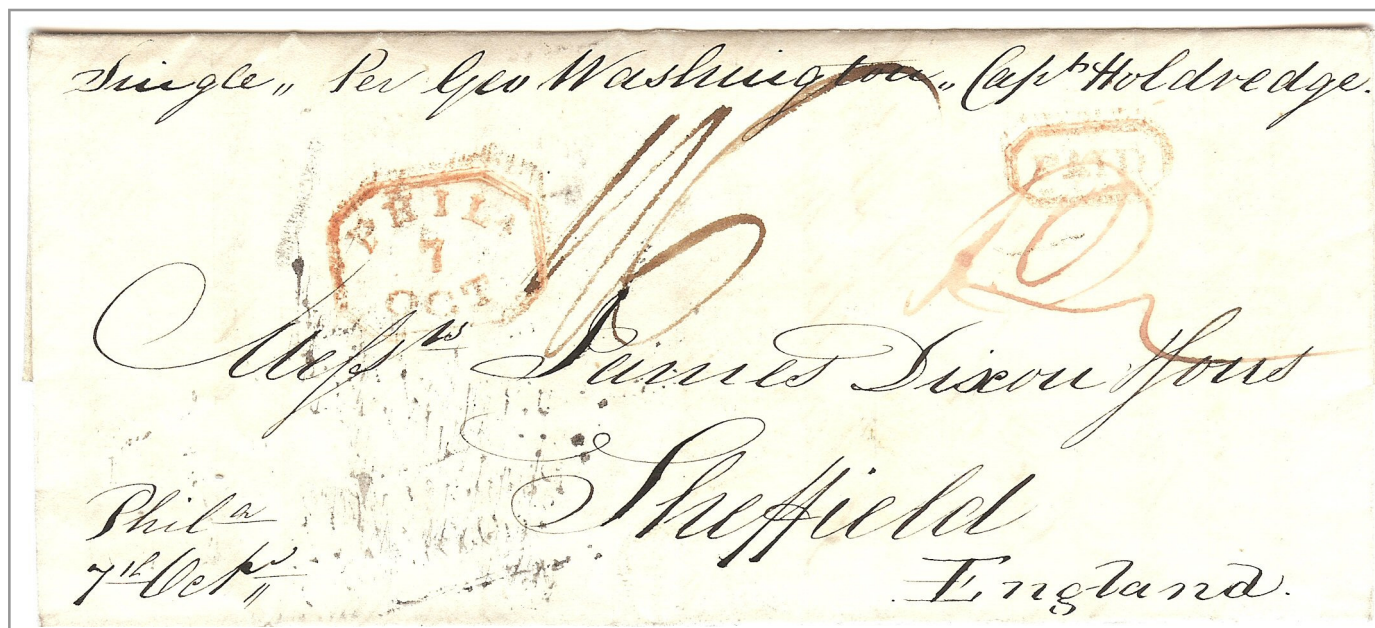 Single „ Per Geo Washington „ Capt Holdredge.
PAID
PHILA
7
OCT
Messrs James Dixon & Sons
Sheffield
England.
Phila
7th Octr „